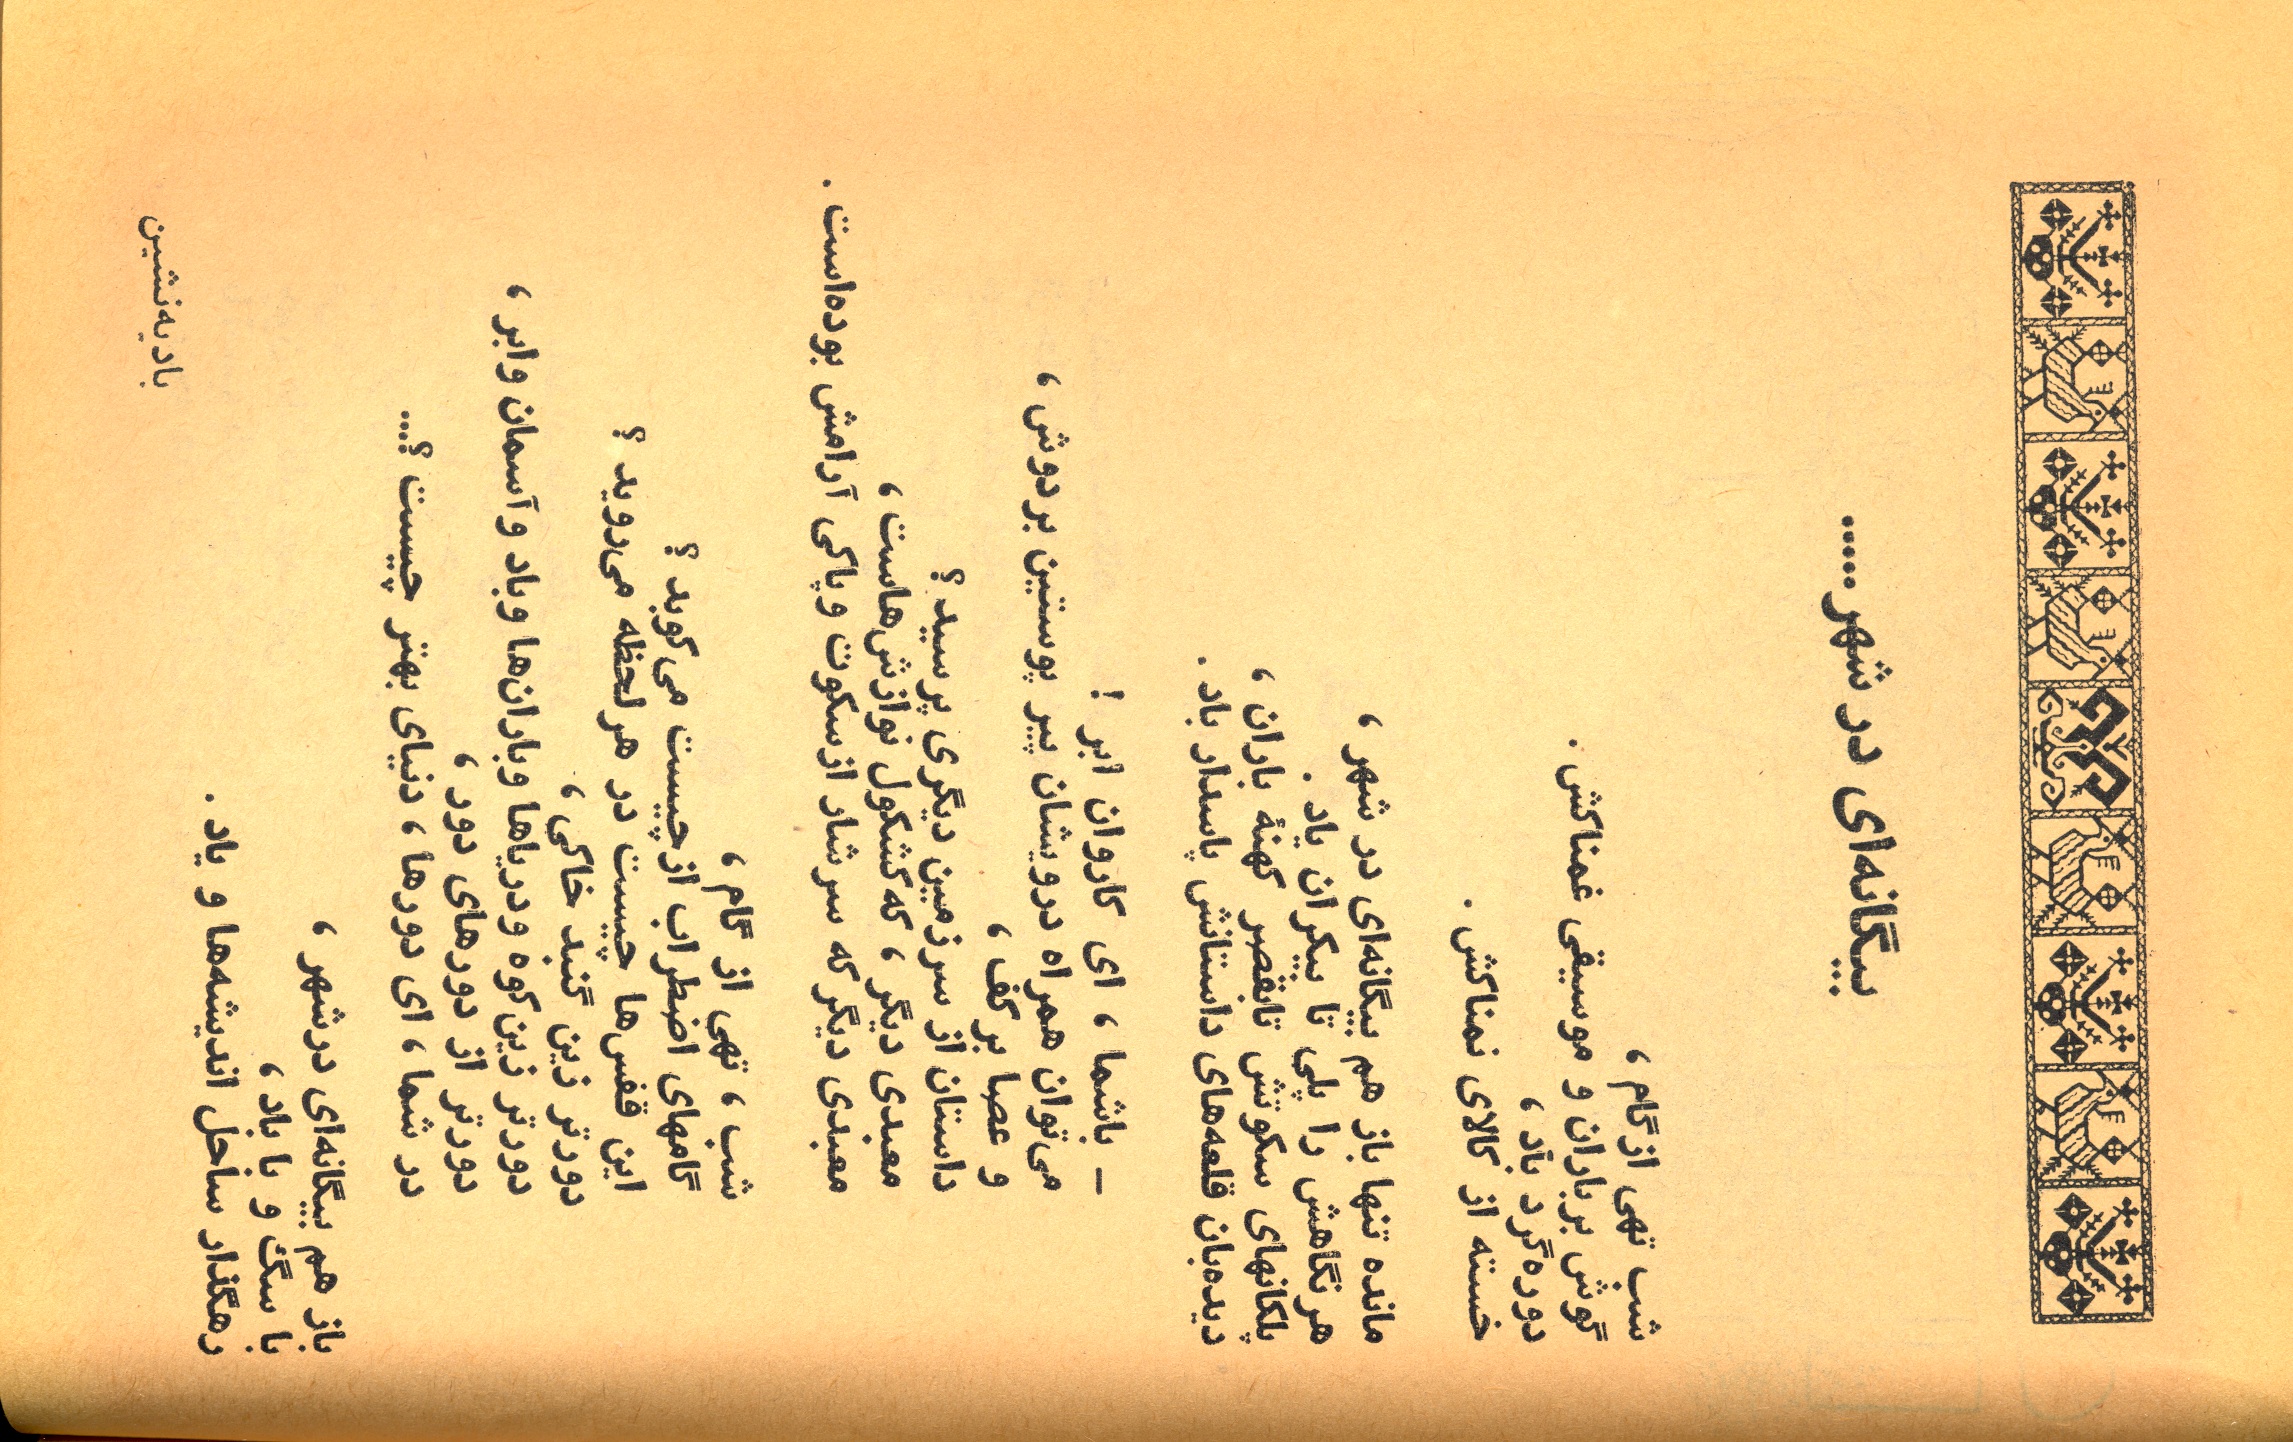 بیگانه‌ای در شهر......
شب تهی از گام،
گوش بر باران و موسیقی غمناکش.
دوره‌گرد باد،
خسته از کالای نمناکش.
مانده تنها باز هم بیگانه‌ای در شهر،
هر نگاهش را پلی تا بیکران یاد.
پلکانهای سکوتش تا قصر کهنهٔ باران،
دیده‌بان قلعه‌های داستانش پاسدار باد.
– باشما، ای کاروان ابر!
می‌توان همراه درویشان پیر پوستین بردوش،
و عصا بر کف،
داستان از سرزمین دیگری پرسید؟
معبدی دیگر، که کشکول نوازش‌هاست،
معبدی دیگر که سرشار از سکوت و پاکی آرامش بوده‌است.
شب، تهی از گام،
گامهای اضطراب از چیست می‌کوبد؟
این قفس‌ها چیست در هر لحظه می‌روید؟
دورتر زین گنبد خاکی،
دورتر زین کوه و دریاها و باران‌ها و باد و آسمان و ابر،
دورتر از دورهای دور،
در شما، ای دورها، دنیای بهتر چیست؟...
باز هم بیگانه‌ای در شهر،
با سگ و با باد،
رهگذار ساحل اندیشه‌ها و یاد.
بادیه‌نشین